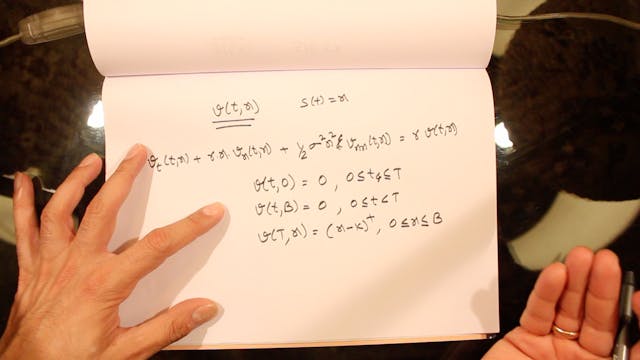 v(t,x) S(t)=x
v_t(t,x) + r x v_x(t,x) + 1/2 σ²x² v_xx(t,x) = r v(t,x)
v(t,0) = 0 , 0≤t≤T
v(t,B) = 0 , 0≤t<T
v(T,x) = (x-K)⁺, 0≤x≤B